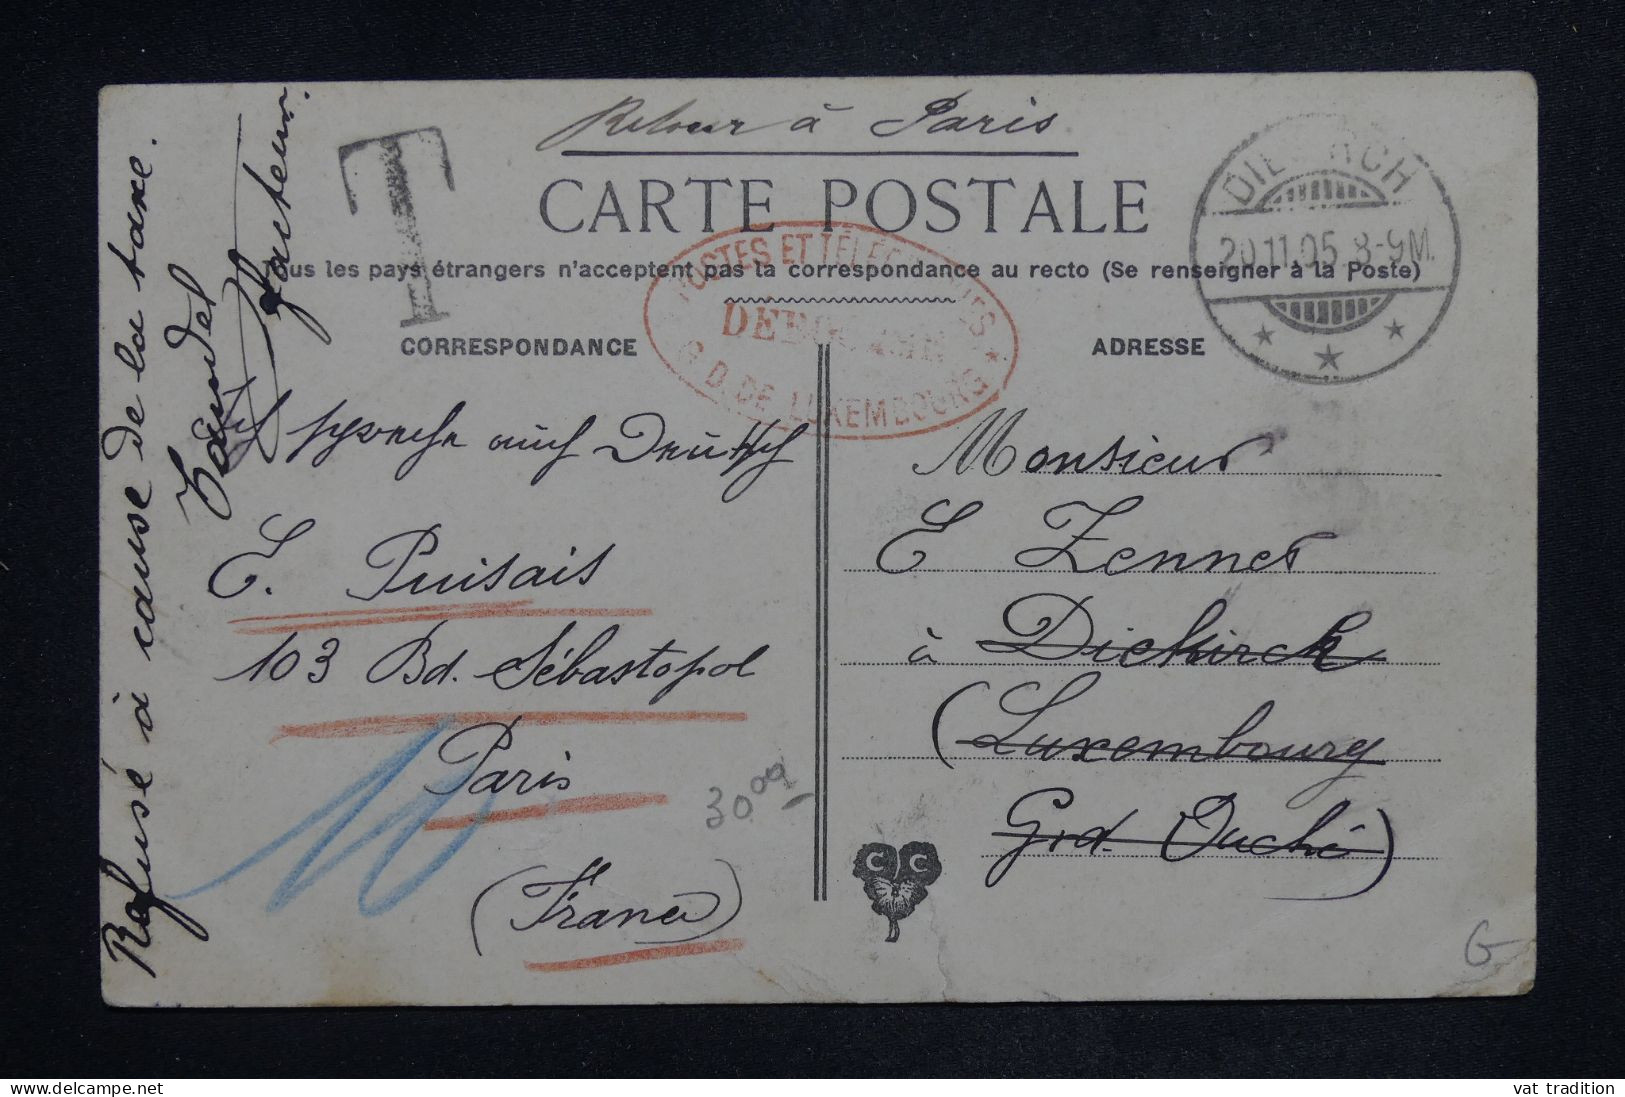 Retour à Paris
T
CARTE POSTALE
Tous les pays étrangers n'acceptent pas la correspondance au recto (Se renseigner à la Poste)
POSTES ET TÉLÉGRAPHES
G. D. DE LUXEMBOURG
DIEKIRCH
20.11.05 8-9M.
CORRESPONDANCE
ADRESSE
Refusé à cause de la taxe.
facteur.
Ich spreche auch Deutsch
E. Puisais
103 Bd. Sébastopol
Paris
(France)
10
30.09
Monsieur
E Zenner
à Diekirck
(Luxembourg
Grd. Duché)
C C
G
vat tradition
delcampe.net